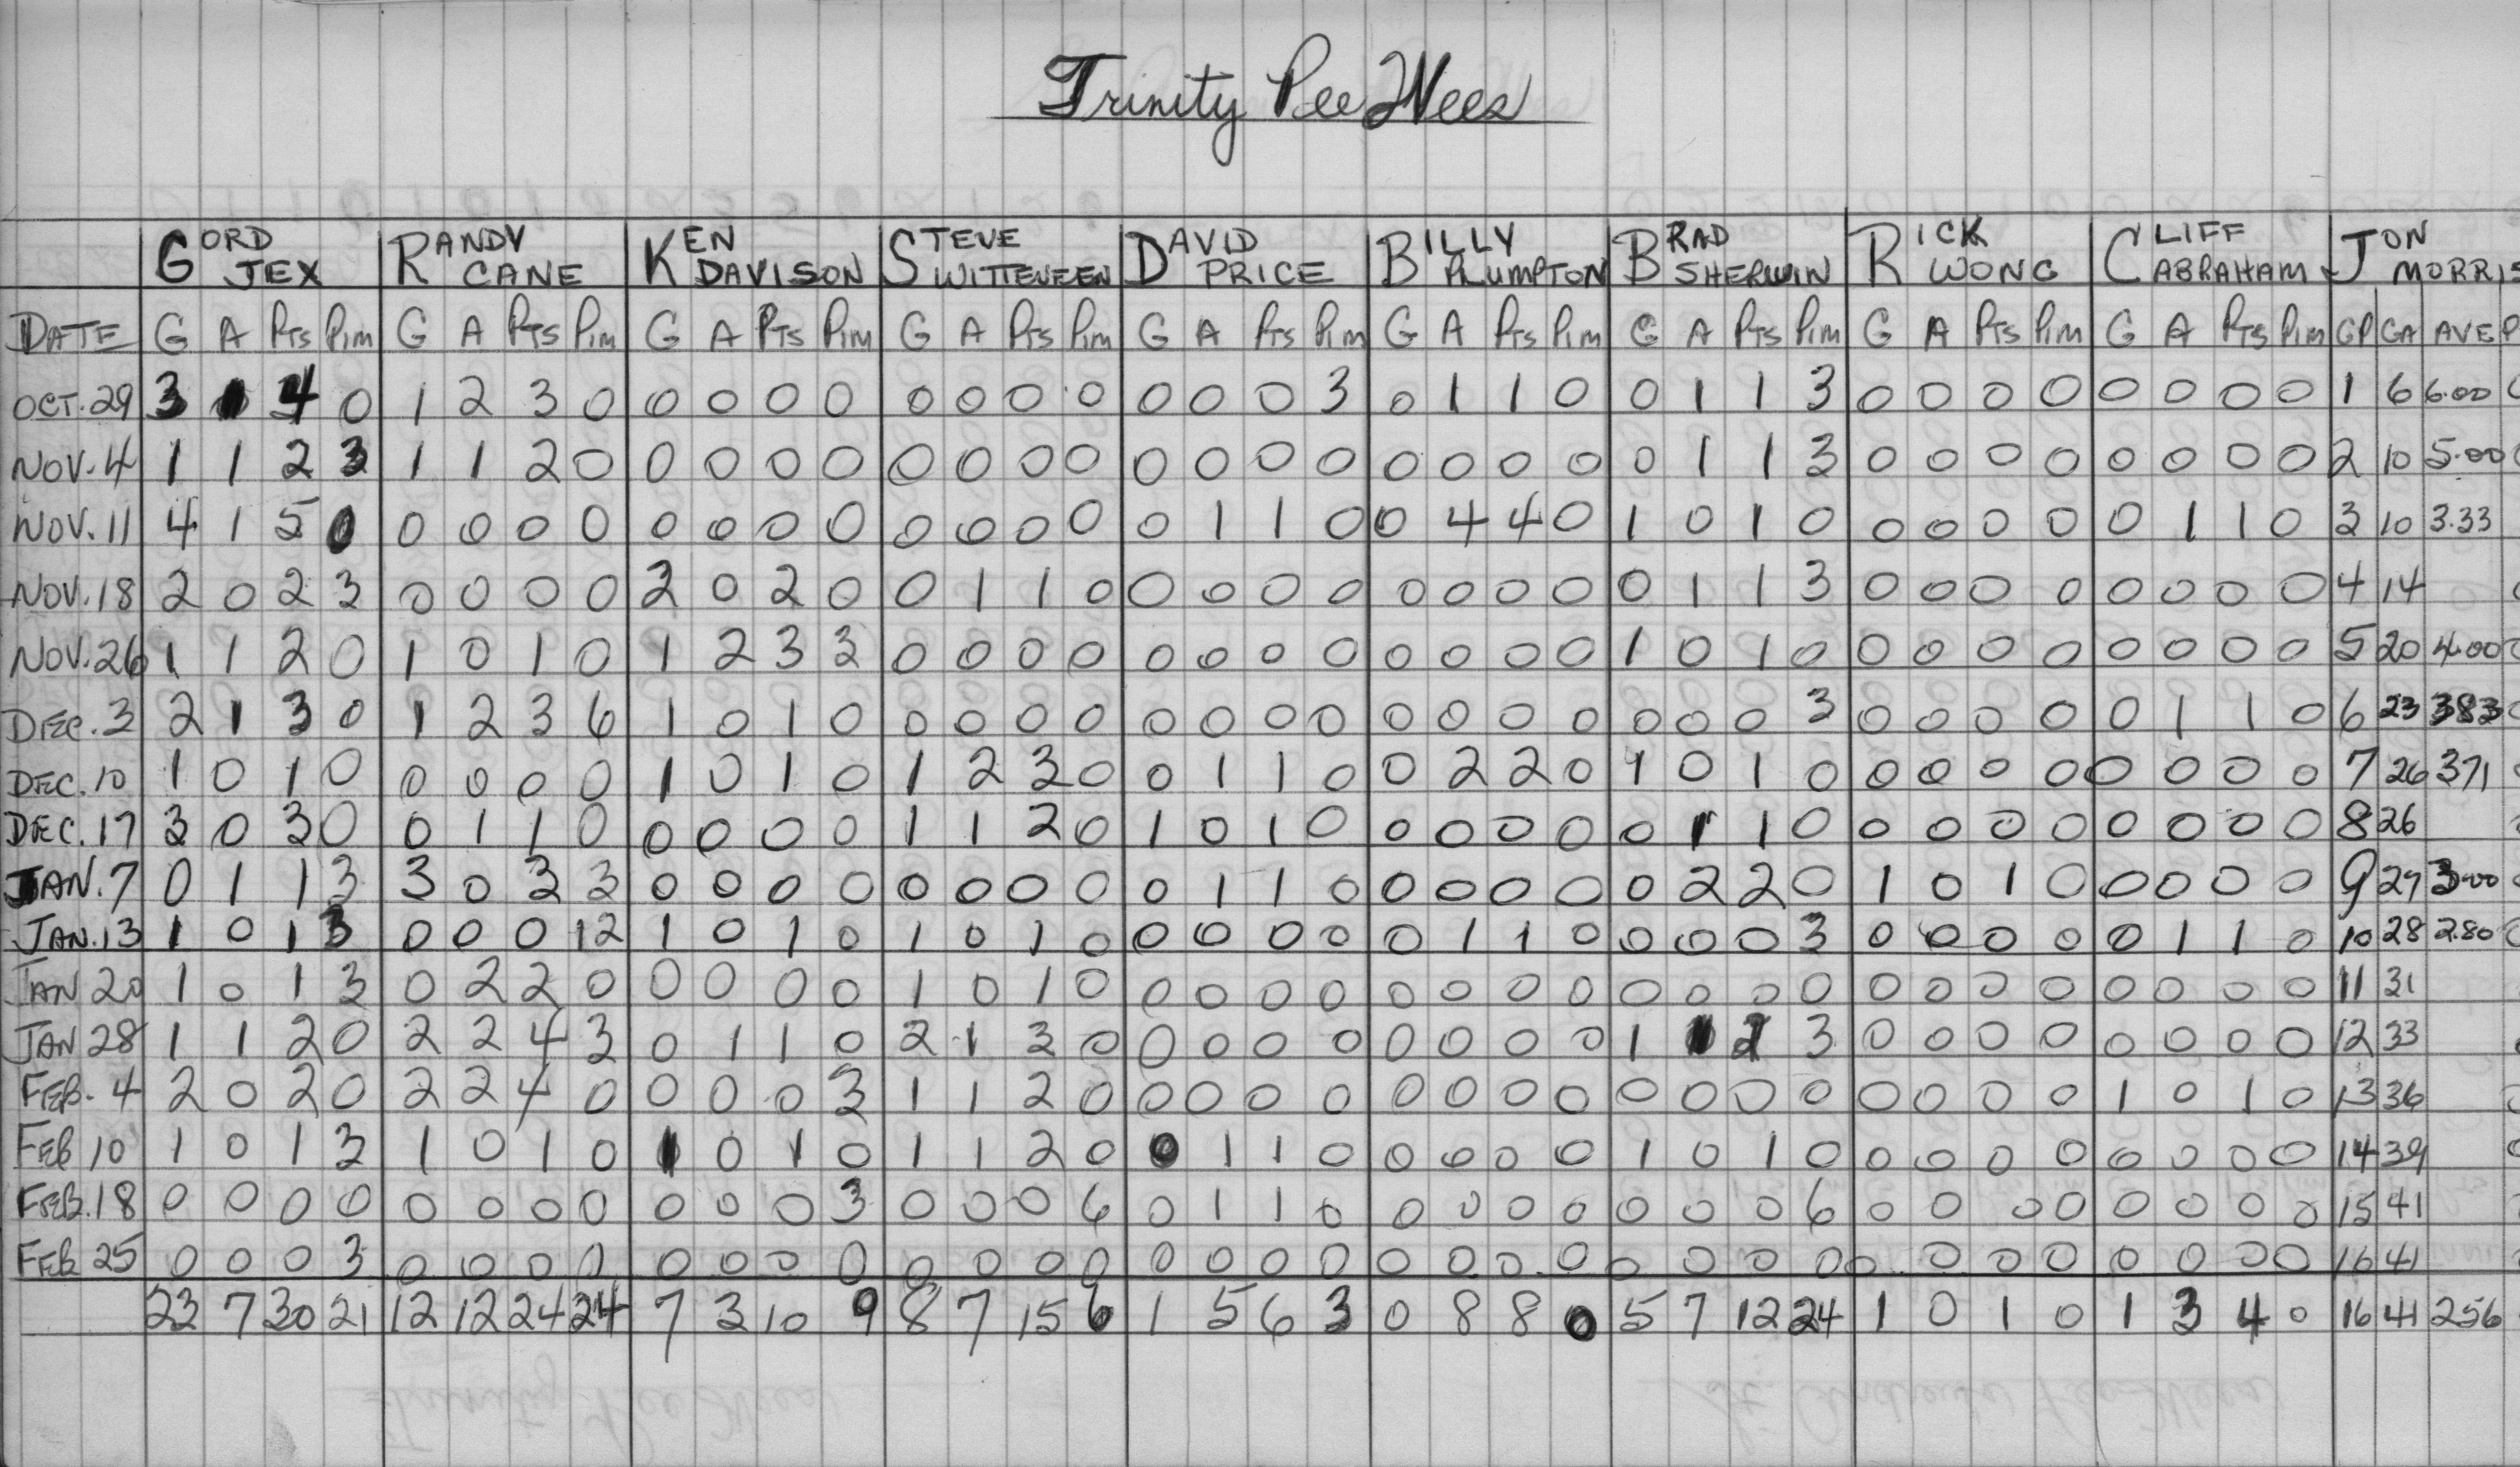 Trinity Pee Wees
GORD JEX RANDY CANE KEN DAVISON STEVE WITTEVEEN DAVID PRICE BILLY PLUMPTON BRAD SHERWIN RICK WONG CLIFF ABRAHAM JON MORRIS
DATE G A Pts Pim G A Pts Pim G A Pts Pim G A Pts Pim G A Pts Pim G A Pts Pim G A Pts Pim G A Pts Pim G A Pts Pim GP GA AVE P
OCT. 29 3 1 4 0 1 2 3 0 0 0 0 0 0 0 0 0 0 0 0 3 0 1 1 0 0 1 1 3 0 0 0 0 0 0 0 0 1 6 6.00
NOV. 4 1 1 2 3 1 1 2 0 0 0 0 0 0 0 0 0 0 0 0 0 0 0 0 0 0 1 1 3 0 0 0 0 0 0 0 0 2 10 5.00
NOV. 11 4 1 5 0 0 0 0 0 0 0 0 0 0 0 0 0 0 1 1 0 0 4 4 0 1 0 1 0 0 0 0 0 0 1 1 0 3 10 3.33
NOV. 18 2 0 2 3 0 0 0 0 2 0 2 0 0 1 1 0 0 0 0 0 0 0 0 0 0 1 1 3 0 0 0 0 0 0 0 0 4 14
NOV. 26 1 1 2 0 1 0 1 0 1 2 3 3 0 0 0 0 0 0 0 0 0 0 0 0 1 0 1 0 0 0 0 0 0 0 0 0 5 20 4.00
DEC. 3 2 1 3 0 1 2 3 6 1 0 1 0 0 0 0 0 0 0 0 0 0 0 0 0 0 0 0 3 0 0 0 0 0 1 1 0 6 23 383
DEC. 10 1 0 1 0 0 0 0 0 1 0 1 0 1 2 3 0 0 1 1 0 0 2 2 0 1 0 1 0 0 0 0 0 0 0 0 0 7 26 371
DEC. 17 3 0 3 0 0 1 1 0 0 0 0 0 1 1 2 0 1 0 1 0 0 0 0 0 0 1 1 0 0 0 0 0 0 0 0 0 8 26
JAN. 7 0 1 1 3 3 0 3 3 0 0 0 0 0 0 0 0 0 1 1 0 0 0 0 0 0 2 2 0 1 0 1 0 0 0 0 0 9 27 3.00
JAN. 13 1 0 1 3 0 0 0 12 1 0 1 0 1 0 1 0 0 0 0 0 0 1 1 0 0 0 0 3 0 0 0 0 0 1 1 0 10 28 2.80
JAN 20 1 0 1 3 0 2 2 0 0 0 0 0 1 0 1 0 0 0 0 0 0 0 0 0 0 0 0 0 0 0 0 0 0 0 0 0 11 31
JAN 28 1 1 2 0 2 2 4 3 0 1 1 0 2 1 3 0 0 0 0 0 0 0 0 0 1 1 2 3 0 0 0 0 0 0 0 0 12 33
FEB. 4 2 0 2 0 2 2 4 0 0 0 0 3 1 1 2 0 0 0 0 0 0 0 0 0 0 0 0 0 0 0 0 0 1 0 1 0 13 36
FEB 10 1 0 1 3 1 0 1 0 1 0 1 0 1 1 2 0 0 1 1 0 0 0 0 0 1 0 1 0 0 0 0 0 0 0 0 0 14 39
FEB. 18 0 0 0 0 0 0 0 0 0 0 0 3 0 0 0 6 0 1 1 0 0 0 0 0 0 0 0 6 0 0 0 0 0 0 0 0 15 41
FEB 25 0 0 0 3 0 0 0 0 0 0 0 0 0 0 0 0 0 0 0 0 0 0 0 0 0 0 0 0 0 0 0 0 0 0 0 0 16 41
23 7 30 21 12 12 24 24 7 3 10 9 8 7 15 6 1 5 6 3 0 8 8 0 5 7 12 24 1 0 1 0 1 3 4 0 16 41 256